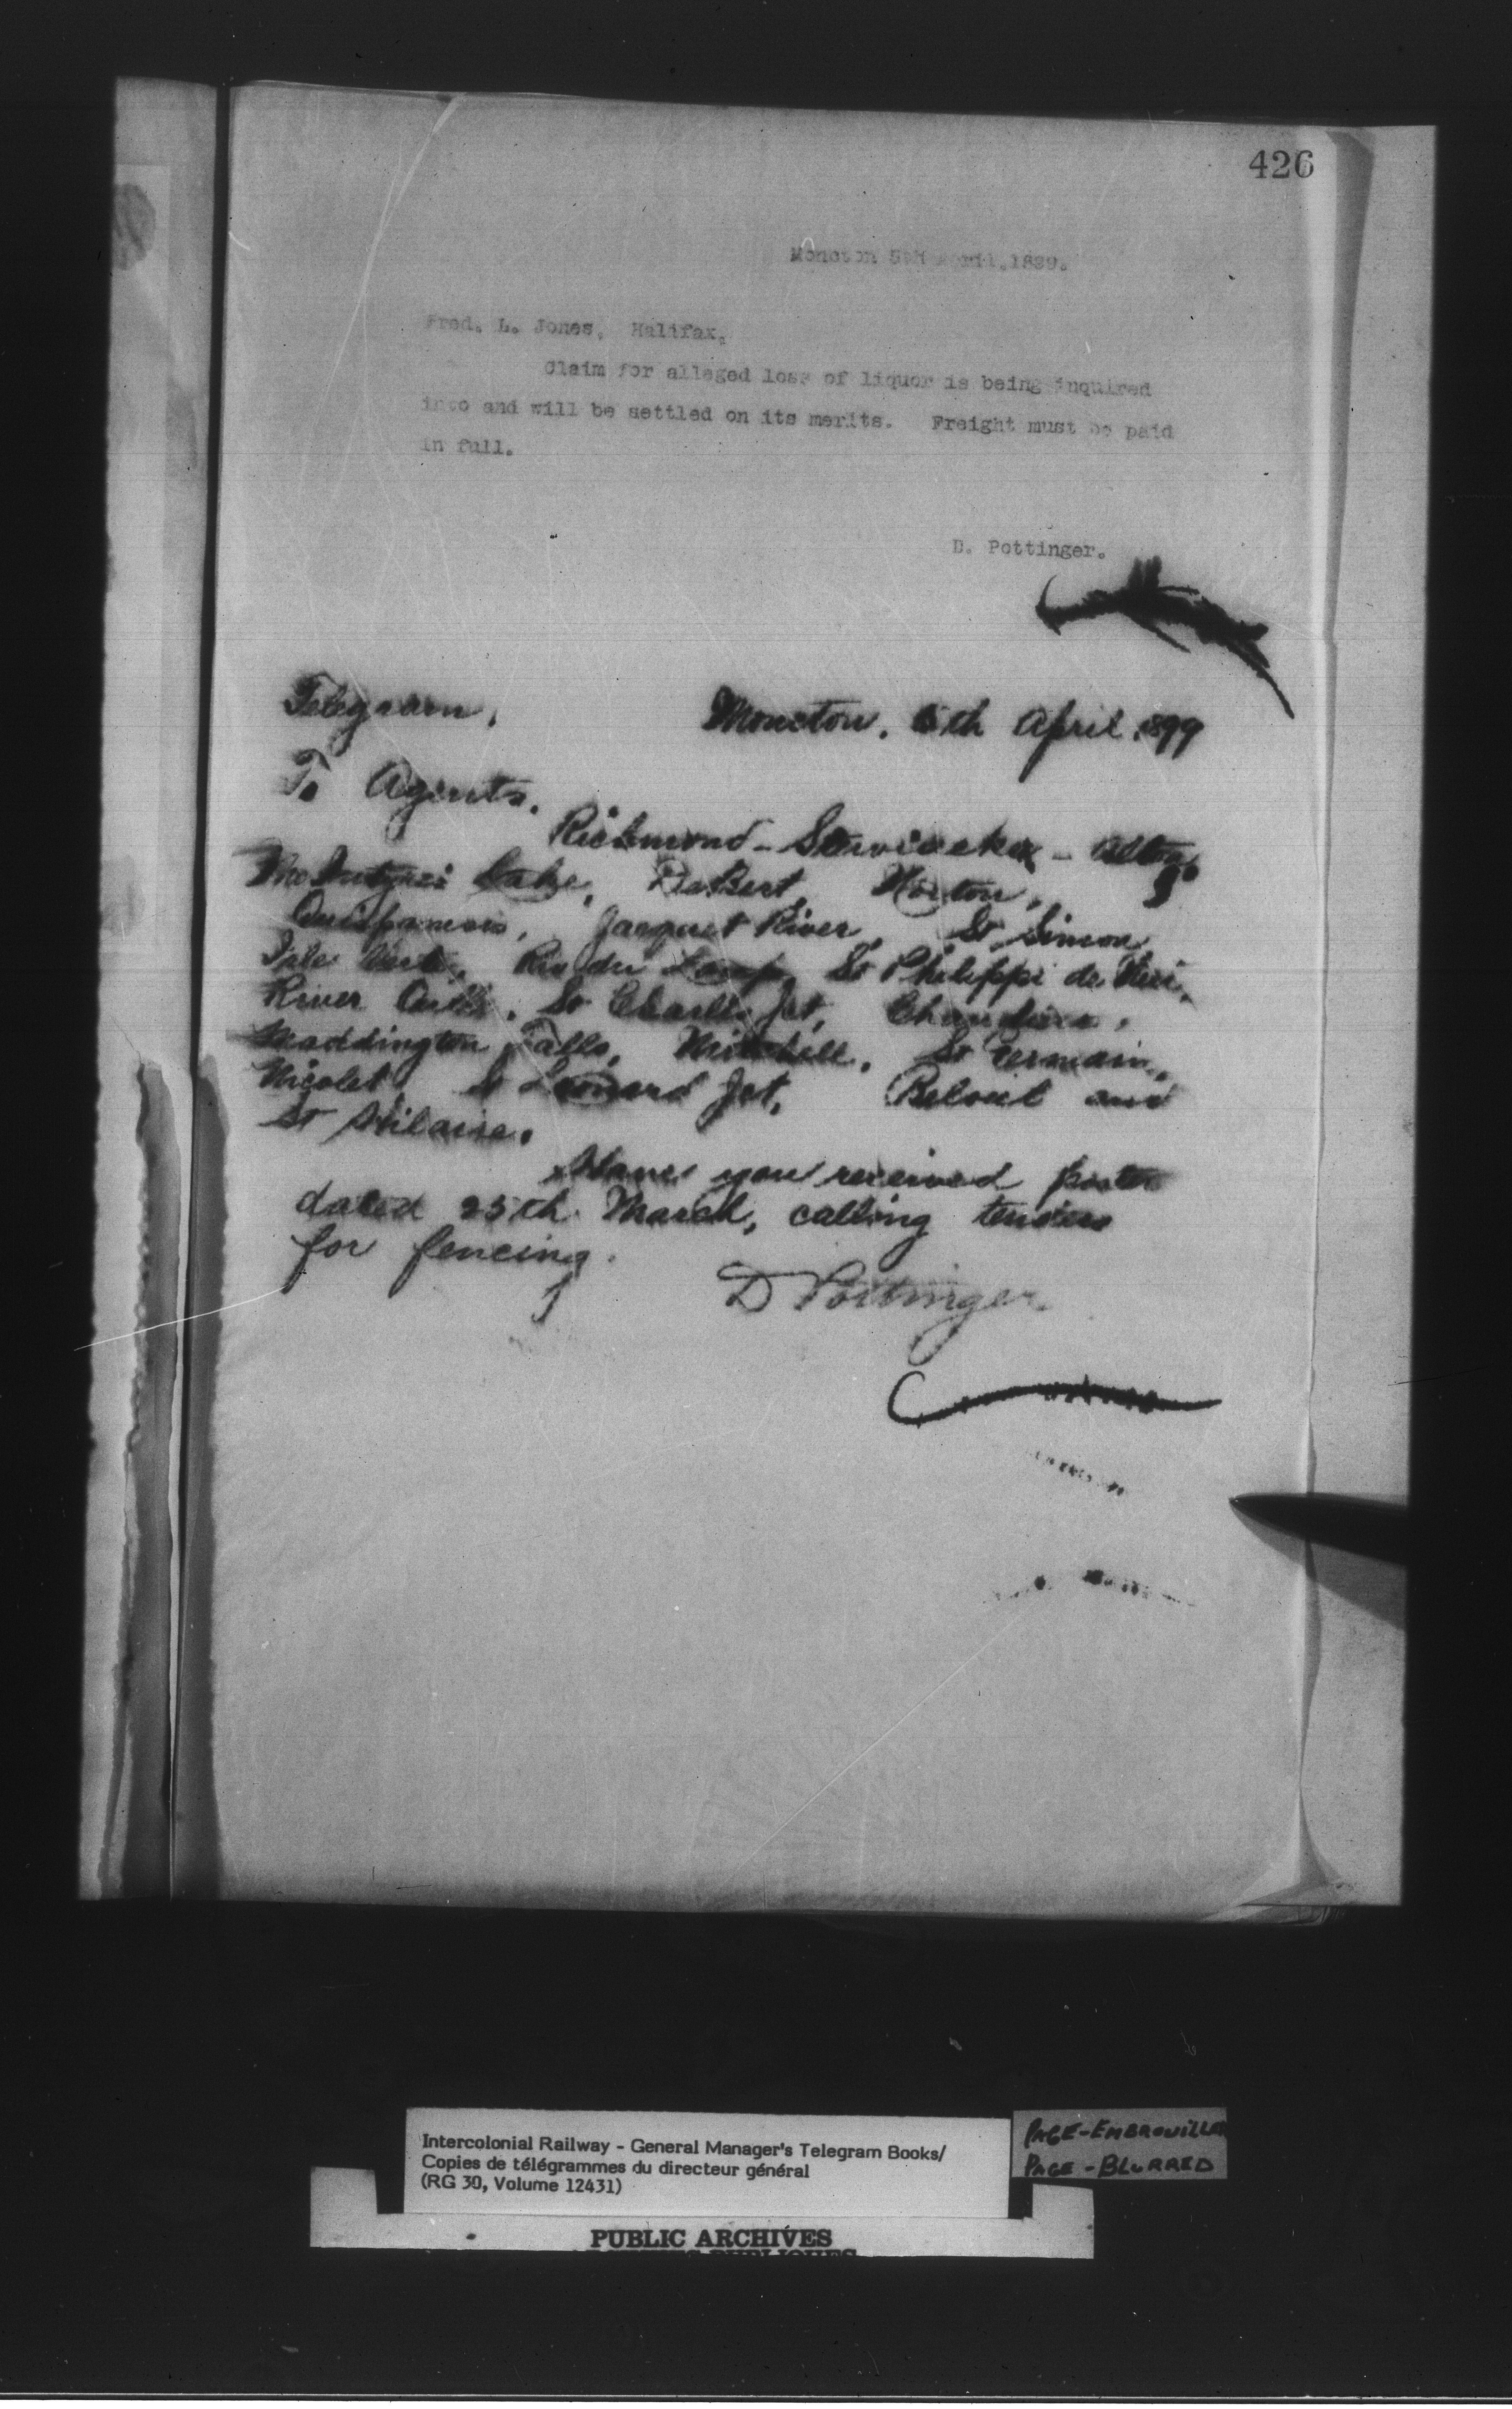 426
Moncton 5th April, 1899.
Fred. L. Jones, Halifax,
Claim for alleged loss of liquor is being inquired
into and will be settled on its merits. Freight must be paid
in full.
D. Pottinger.
Telegram, Moncton. 5th April, 1899
To Agents.
Richmond - Stewiacke -
Lake, DeBert, Norton,
Quispamsis, Jacquet River, St Simon
Isle Verte, Riv du Loup, St Philippi de Neri,
River Ouelle, St Charles Jct, Chaudiere,
Maddington Falls, Mitchell, St Germain,
Nicolet, St Leonard Jct, Beloeil and
St Hilaire.
Have you received poster
dated 25th March, calling tenders
for fencing.
D Pottinger
Intercolonial Railway - General Manager's Telegram Books/
Copies de télégrammes du directeur général
(RG 30, Volume 12431)
PAGE-EMBROUILLÉE
PAGE-BLURRED
PUBLIC ARCHIVES